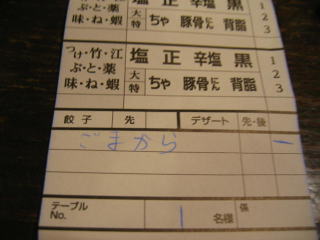 塩 正 辛塩 黒 1
ぶ・と・薬 大 2
味・ね・蝦 特 ちゃ 豚骨にん 背脂 3
つけ・竹・江 塩 正 辛塩 黒 1
ぶ・と・薬 大 2
味・ね・蝦 特 ちゃ 豚骨にん 背脂 3
餃子 先 デザート 先・後
ごまから 一
テーブル 係
No. 1 名様